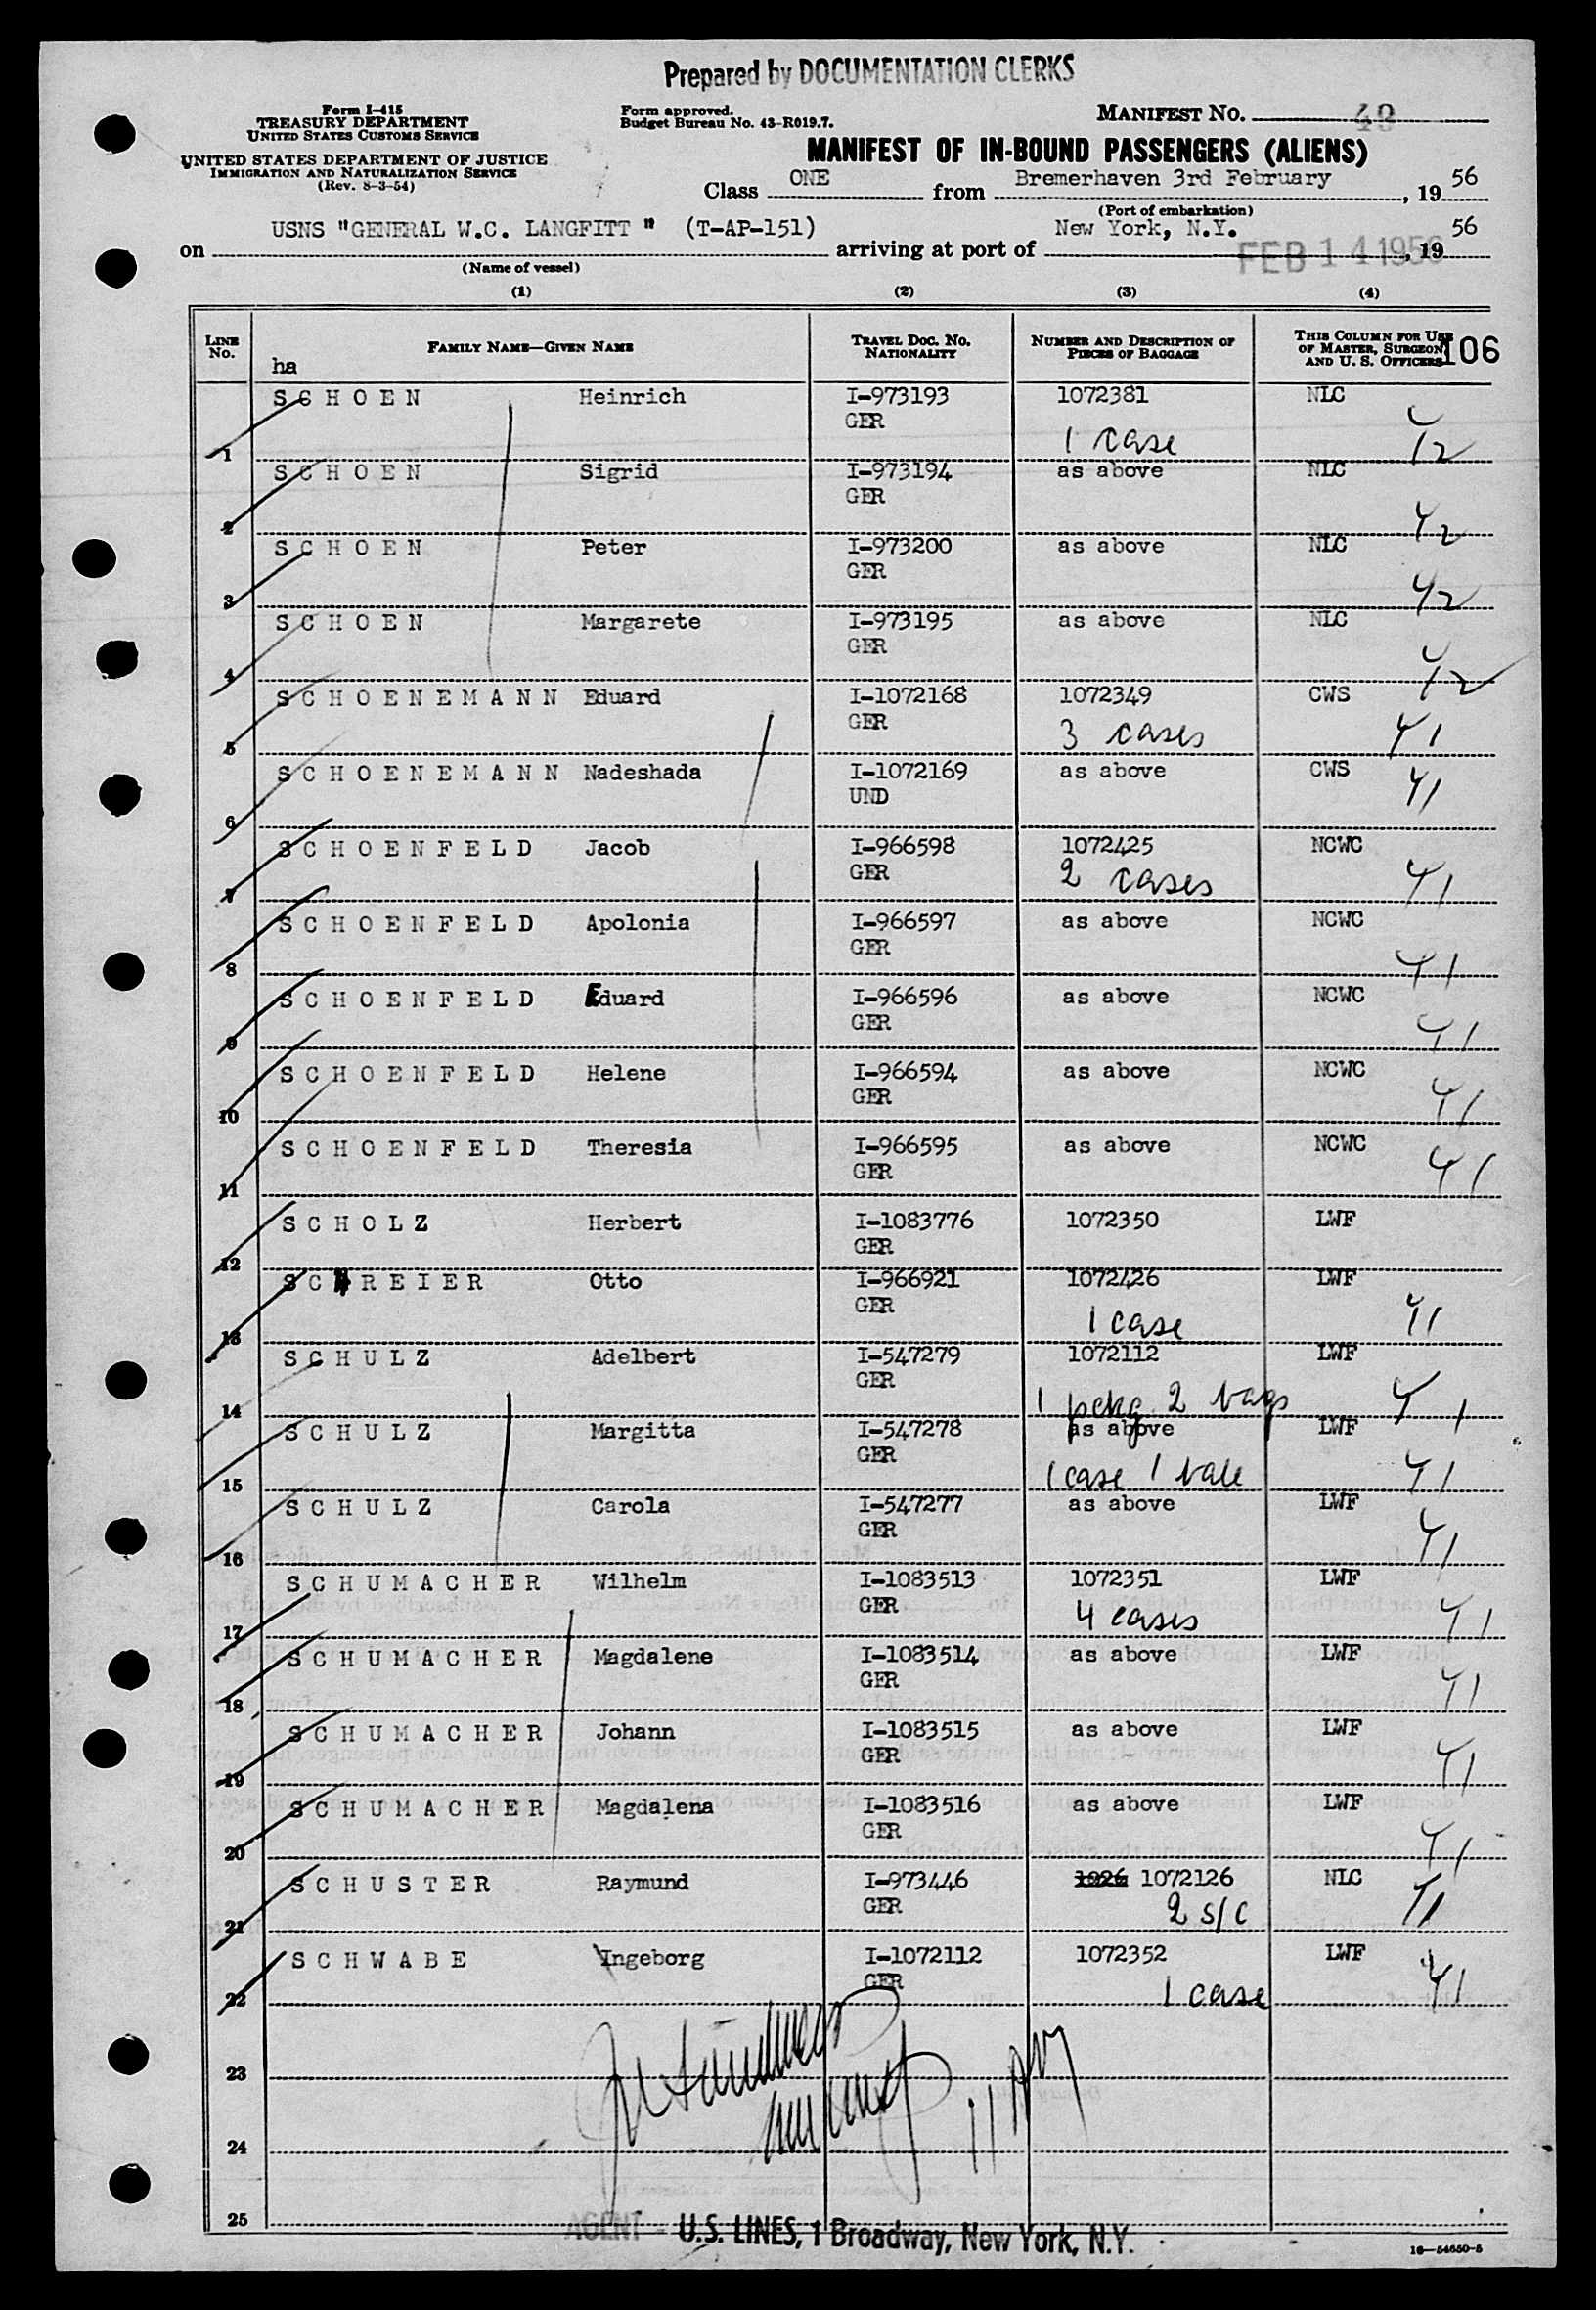 Prepared by DOCUMENTATION CLERKS
Form I-415
TREASURY DEPARTMENT
UNITED STATES CUSTOMS SERVICE
UNITED STATES DEPARTMENT OF JUSTICE
IMMIGRATION AND NATURALIZATION SERVICE
(Rev. 8-3-54)
Form approved.
Budget Bureau No. 43-R019.7.
MANIFEST NO. 49
MANIFEST OF IN-BOUND PASSENGERS (ALIENS)
Class ONE from Bremerhaven 3rd February, 19 56
(Port of embarkation)
on USNS "GENERAL W.C. LANGFITT " (T-AP-151) arriving at port of New York, N.Y. FEB 14 1956, 19 56
(Name of vessel)
(1) (2) (3) (4)
LINE No. FAMILY NAME—GIVEN NAME TRAVEL DOC. NO. NATIONALITY NUMBER AND DESCRIPTION OF PIECES OF BAGGAGE THIS COLUMN FOR USE OF MASTER, SURGEON, AND U. S. OFFICERS 106
ha
S C H O E N Heinrich I-973193 1072381 NLC
GER
1 1 case 42
S C H O E N Sigrid I-973194 as above NLC
GER
2 42
S C H O E N Peter I-973200 as above NLC
GER
3 42
S C H O E N Margarete I-973195 as above NLC
GER
4 42
S C H O E N E M A N N Eduard I-1072168 1072349 CWS
GER
5 3 cases 41
S C H O E N E M A N N Nadeshada I-1072169 as above CWS
UND
6 41
S C H O E N F E L D Jacob I-966598 1072425 NCWC
GER
7 2 cases 41
S C H O E N F E L D Apolonia I-966597 as above NCWC
GER
8 41
S C H O E N F E L D Eduard I-966596 as above NCWC
GER
9 41
S C H O E N F E L D Helene I-966594 as above NCWC
GER
10 41
S C H O E N F E L D Theresia I-966595 as above NCWC
GER
11 41
S C H O L Z Herbert I-1083776 1072350 LWF
GER
12
S C H R E I E R Otto I-966921 1072426 LWF
GER
13 1 case 41
S C H U L Z Adelbert I-547279 1072112 LWF
GER
14 1 pckg. 2 bags 41
S C H U L Z Margitta I-547278 as above LWF
GER
15 1 case 1 bale 41
S C H U L Z Carola I-547277 as above LWF
GER
16 41
S C H U M A C H E R Wilhelm I-1083513 1072351 LWF
GER
17 4 cases 41
S C H U M A C H E R Magdalene I-1083514 as above LWF
GER
18 41
S C H U M A C H E R Johann I-1083515 as above LWF
GER
19 41
S C H U M A C H E R Magdalena I-1083516 as above LWF
GER
20 41
S C H U S T E R Raymund I-973446 1026 1072126 NLC
GER
21 2 s/c 41
S C H W A B E Ingeborg I-1072112 1072352 LWF
GER
22 1 case 41
23
24
25
AGENT - U.S. LINES, 1 Broadway, New York, N.Y.
16—54650-5